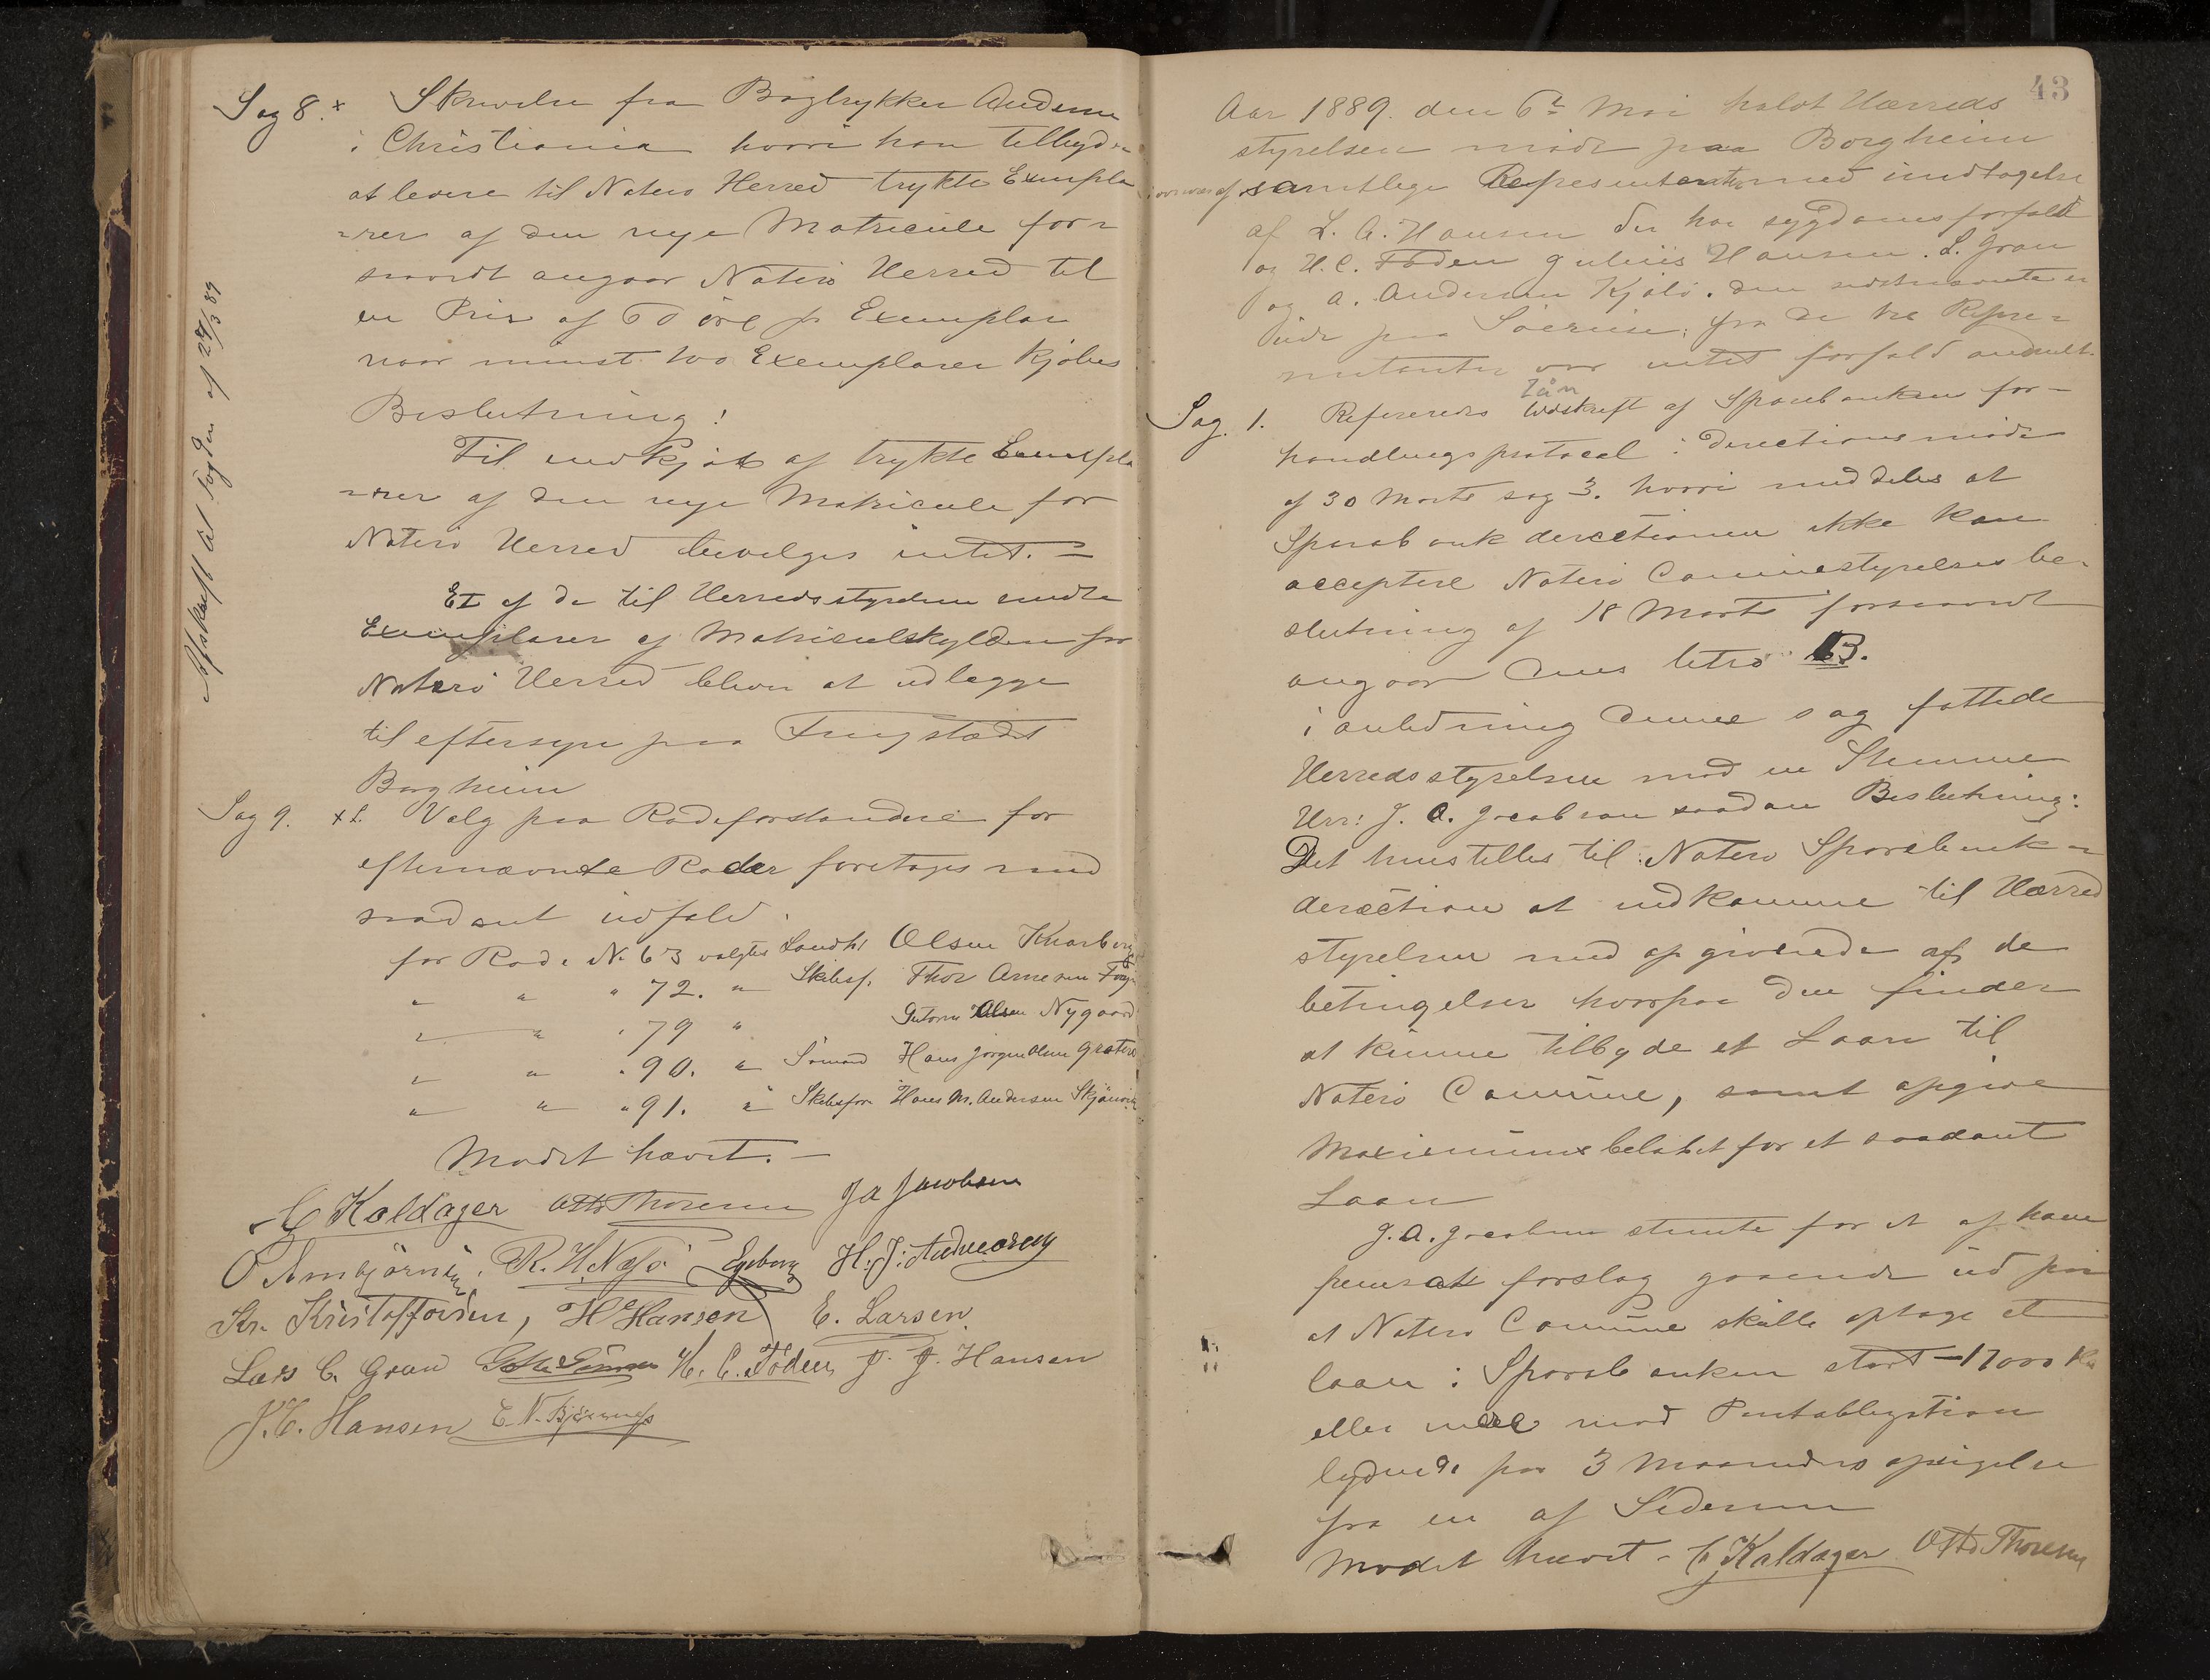 Sag 8. x Skrivelse fra Bogtrykker Andersen
i Christiania hvori han tilbyder
at levere til Nøterø Herred trykte Exempla
-rer af den nye Matricule for-
saavidt angaar Nøterø Herred til
en Pris af 60 øre pr Exemplar
naar minst 100 Exemplarer kjøbes
Beslutning!
Til indkjøb af trykte Exempla
-rer af den nye Matricule for
Nøterø Herred bevilges intet. -
Et af de til Herredsstyrelsen sendte
Exemplarer af Matriculskylden for
Nøterø Herred bliver at udlægge
til eftersyn paa Tingstædet
Borgheim
Afskrift til fogden af 27/3 89
Sag 9. x Valg paa Rodeforstandere for
efternævnte Roder foretages med
saadant udfald.
for Rode No 63 valgtes Landh. Olsen Knarberg
" " " 72. " Skibsf. Thor Arnesen
" " " 79 " Olsen Nygaard
" " " 90. " Sømand Hans Jørgen Olsen Grøterø
" " " 91. " Skibsfør. Hans M. Andersen
Mødet hævet. -
C Kaldager Otto Thoresen J A Jacobsen
O Ambjørnsen. R. H. Næsø H. J.
Kr. Kristoffersen, H Hansen E. Larsen
Lars C. Gran H. C. Föden J. J. Hansen
J. C. Hansen C. N. Bjørnnes
43
Aar 1889. den 6te Mai holdt Herreds
styrelsen møde paa Borgheim
samtlige Representanter med undtagelse
af L. A. Hansen der har sygdomsforfald
og H. C. Föden Julius Hansen. L. Gran
og A. Andersen Kjøle. den sidstnævnte er
ude paa Søreise. fra de tre Repre-
sentanter var intet forfald anmeldt.
Lån
Sag. 1. Refereredes Udskrift af Sparebanken for-
handlingsprotocol i directionsmøde
af 30 Marts sag 3. hvori meddeles at
Sparebank directionen ikke kan
acceptere Nøterø Communestyrelses be-
slutning af 18 Marts forsaavidt
angaar dens litra B.
i anledning denne sag fattede
Herredsstyrelsen mod en Stemme
Hrr: J. A. Jacobsen saadan Beslutning:
Det henstilles til Nøterø Sparebank-
direction at indkomme til Herred
styrelsen med opgivende af de
betingelser hvorpaa den finder
at kunne tilbyde et Laan til
Nøterø Commune, samt opgive
Maximumsbeløbet for et saadant
Laan
J. A. Jacobsen stemte for et af ham
fremsat forslag gaaende ud paa
at Nøterø Commune skulle optage et
laan i Sparebanken stort 17000 Kr
eller mere mod Pantobligation
lydende paa 3 Maaneders opsigelse
fra en af Siderne
Mødet hævet - C Kaldager Otto Thoresen